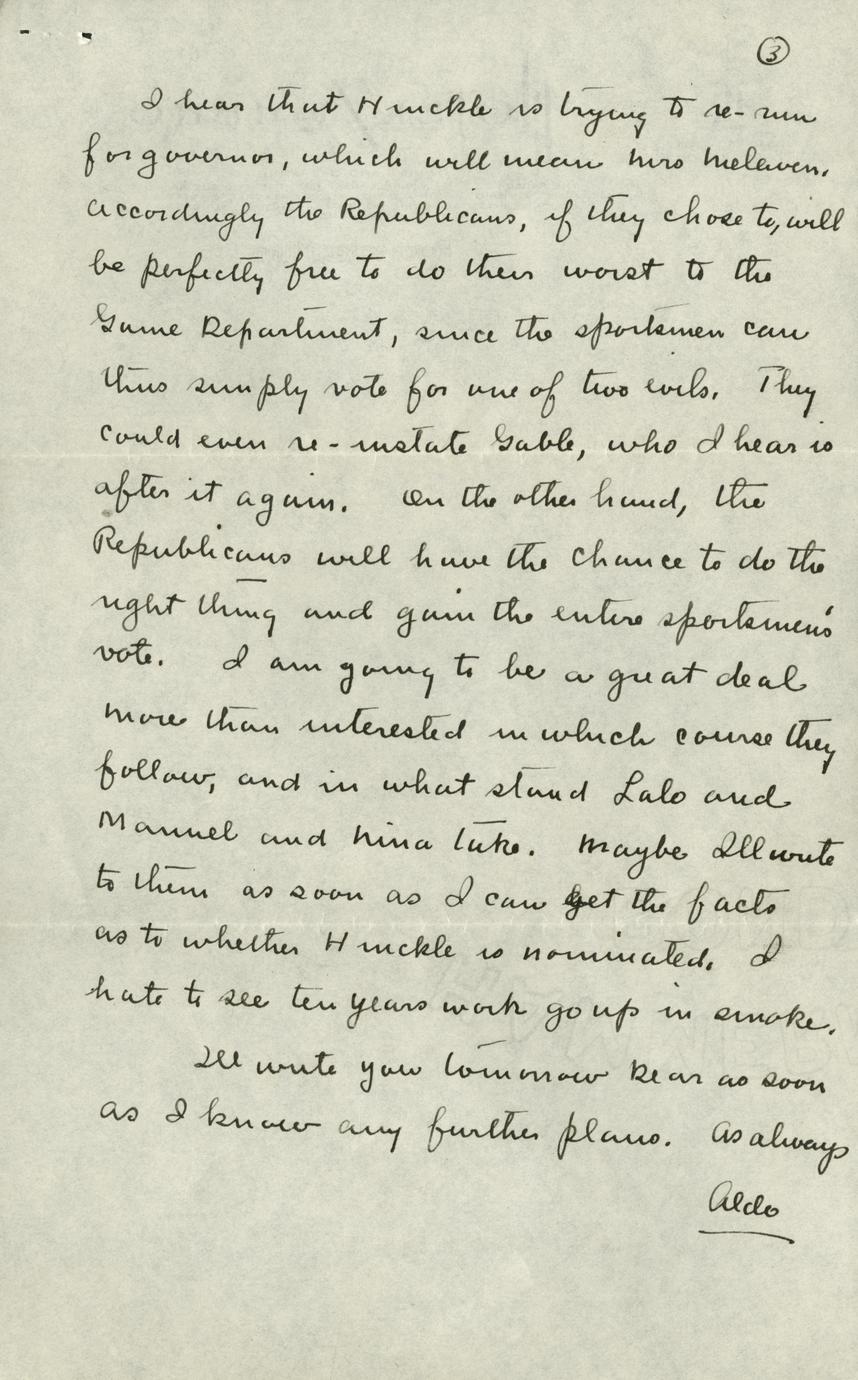 3
I hear that Hinckle is trying to re-run
for governor, which will mean Mrs Melaven.
Accordingly the Republicans, if they chose to, will
be perfectly free to do their worst to the
Game Department, since the sportsmen can
thus simply vote for one of two evils. They
could even re-instate Gable, who I hear is
after it again. On the other hand, the
Republicans will have the chance to do the
right thing and gain the entire sportsmen's
vote. I am going to be a great deal
more than interested in which course they
follow, and in what stand Lalo and
Manuel and Nina take. Maybe Ill write
to them as soon as I can get the facts
as to whether Hinckle is nominated. I
hate to see ten years work go up in smoke.
Ill write you tomorrow Dear as soon
as I know any further plans. As always
Aldo